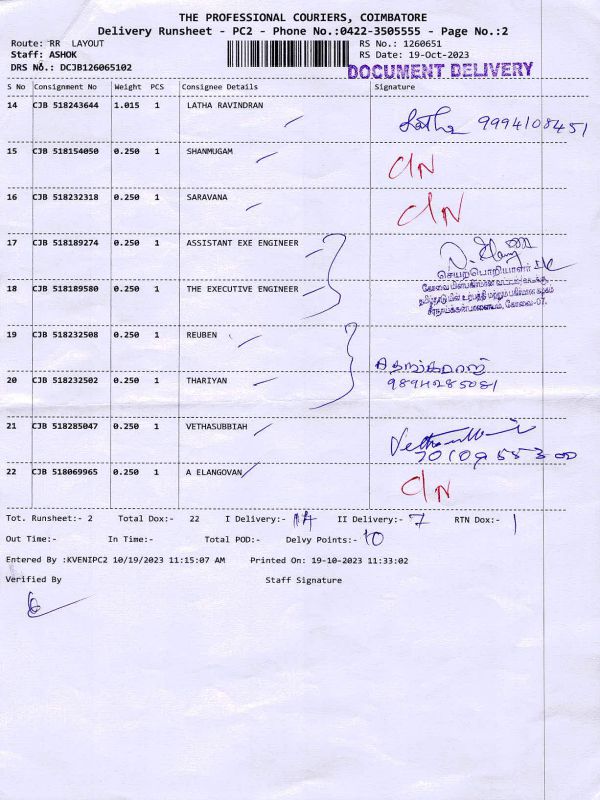 THE PROFESSIONAL COURIERS, COIMBATORE
Delivery Runsheet - PC2 - Phone No.:0422-3505555 - Page No.:2
Route: RR LAYOUT RS No.: 1260651
Staff: ASHOK RS Date: 19-Oct-2023
DRS No.: DCJB126065102 DOCUMENT DELIVERY
S No Consignment No Weight PCS Consignee Details Signature
14 CJB 518243644 1.015 1 LATHA RAVINDRAN
Latha 9994108451
15 CJB 518154050 0.250 1 SHANMUGAM
C/N
16 CJB 518232318 0.250 1 SARAVANA
C/N
17 CJB 518189274 0.250 1 ASSISTANT EXE ENGINEER
செயற்பொறியாளர்
18 CJB 518189580 0.250 1 THE EXECUTIVE ENGINEER
கோவை மின்பகிர்மான வட்டம்
தமிழ்நாடு மின் உற்பத்தி மற்றும் பகிர்மான கழகம்
கோவை-07.
19 CJB 518232508 0.250 1 REUBEN
20 CJB 518232502 0.250 1 THARIYAN
9894285081
21 CJB 518285047 0.250 1 VETHASUBBIAH
22 CJB 518069965 0.250 1 A ELANGOVAN
C/N
Tot. Runsheet:- 2 Total Dox:- 22 I Delivery:- 14 II Delivery:- 7 RTN Dox:- 1
Out Time:- In Time:- Total POD:- Delvy Points:- 10
Entered By :KVENIPC2 10/19/2023 11:15:07 AM Printed On: 19-10-2023 11:33:02
Verified By Staff Signature